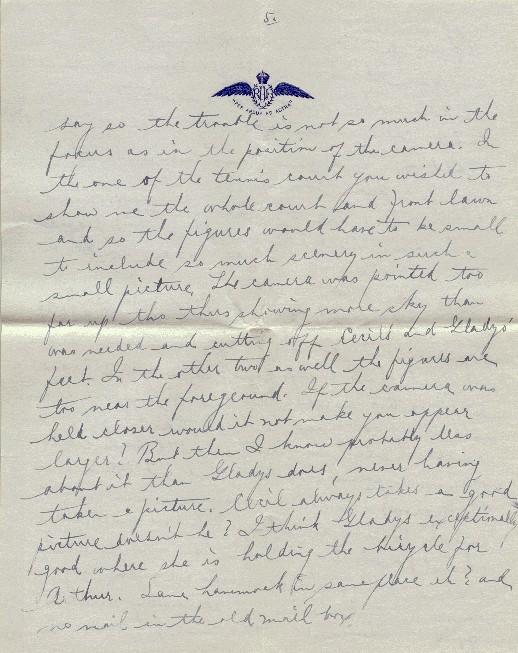 5.
RAF
PER ARDUA AD ASTRA
say so the trouble is not so much in the
focus as in the position of the camera. In
the one of the tennis court you wished to
show me the whole court and front lawn
and so the figures would have to be small
to include so much scenery in such a
small picture. The camera was pointed too
far up tho thus showing more sky than
was needed and cutting off Cecil's and Gladys'
feet. In the other two as well the figures are
too near the foreground. If the camera was
held closer would it not make you appear
larger? But then I know probably less
about it than Gladys does, never having
taken a picture. Cecil always takes a good
picture doesn't he? I think Gladys exceptionally
good where she is holding the bicycle for
Arthur. Same hammock in same place eh? and
no mail in the old mail box.